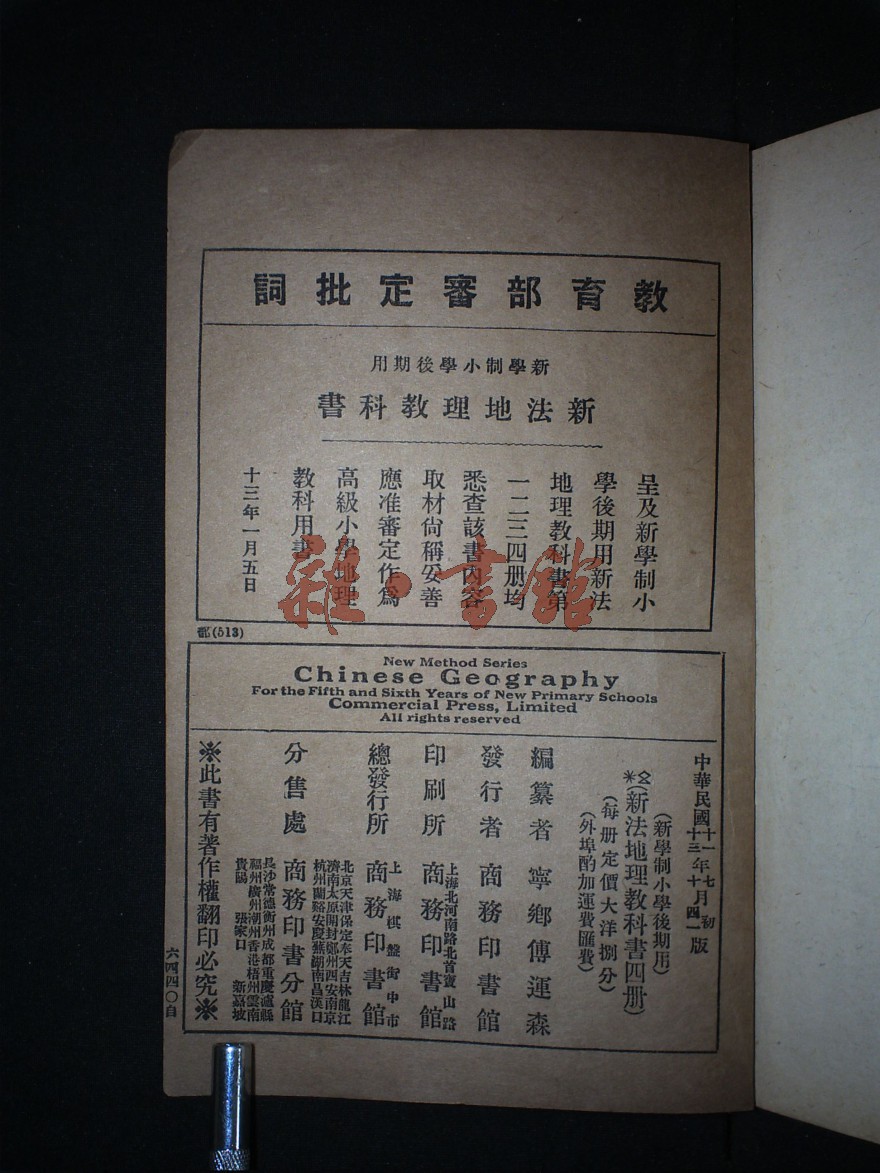 教育部審定批詞
新學制小學後期用
新法地理教科書
呈及新學制小
學後期用新法
地理教科書第
一二三四册均
悉查該書內容
取材尙稱妥善
應准審定作爲
高級小學地理
教科用書
十三年一月五日
(513)
New Method Series
Chinese Geography
For the Fifth and Sixth Years of New Primary Schools
Commercial Press, Limited
All rights reserved
中華民國十一年七月初版
十三年十月四一版
(新學制小學後期用)
(新法地理教科書四册)
(每册定價大洋捌分)
(外埠酌加運費匯費)
編纂者 寧鄉傅運森
發行者 商務印書館
上海北河南路北首寶山路
印刷所 商務印書館
上海棋盤街中市
總發行所 商務印書館
北京天津保定奉天吉林龍江
濟南太原開封鄭州西安南京
杭州蘭谿安慶蕪湖南昌漢口
分售處 商務印書分館
長沙常德衡州成都重慶瀘縣
福州廣州潮州香港梧州雲南
貴陽 張家口 新嘉坡
※此書有著作權翻印必究※
六四四〇自
雜·書館